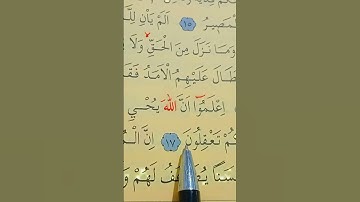 لْمَصٖيرُ ﴿١٥﴾ اَلَمْ يَأْنِ لِلَّ
وَمَا نَزَلَ مِنَ الْحَقِّۙ وَلَا
طَالَ عَلَيْهِمُ الْاَمَدُ فَقَ
اِعْلَمُٓوا اَنَّ اللّٰهَ يُحْيِ
كُمْ تَعْقِلُونَ ﴿١٧﴾ اِنَّ الْمُ
سَنًا يُضَاعَفُ لَهُمْ وَ